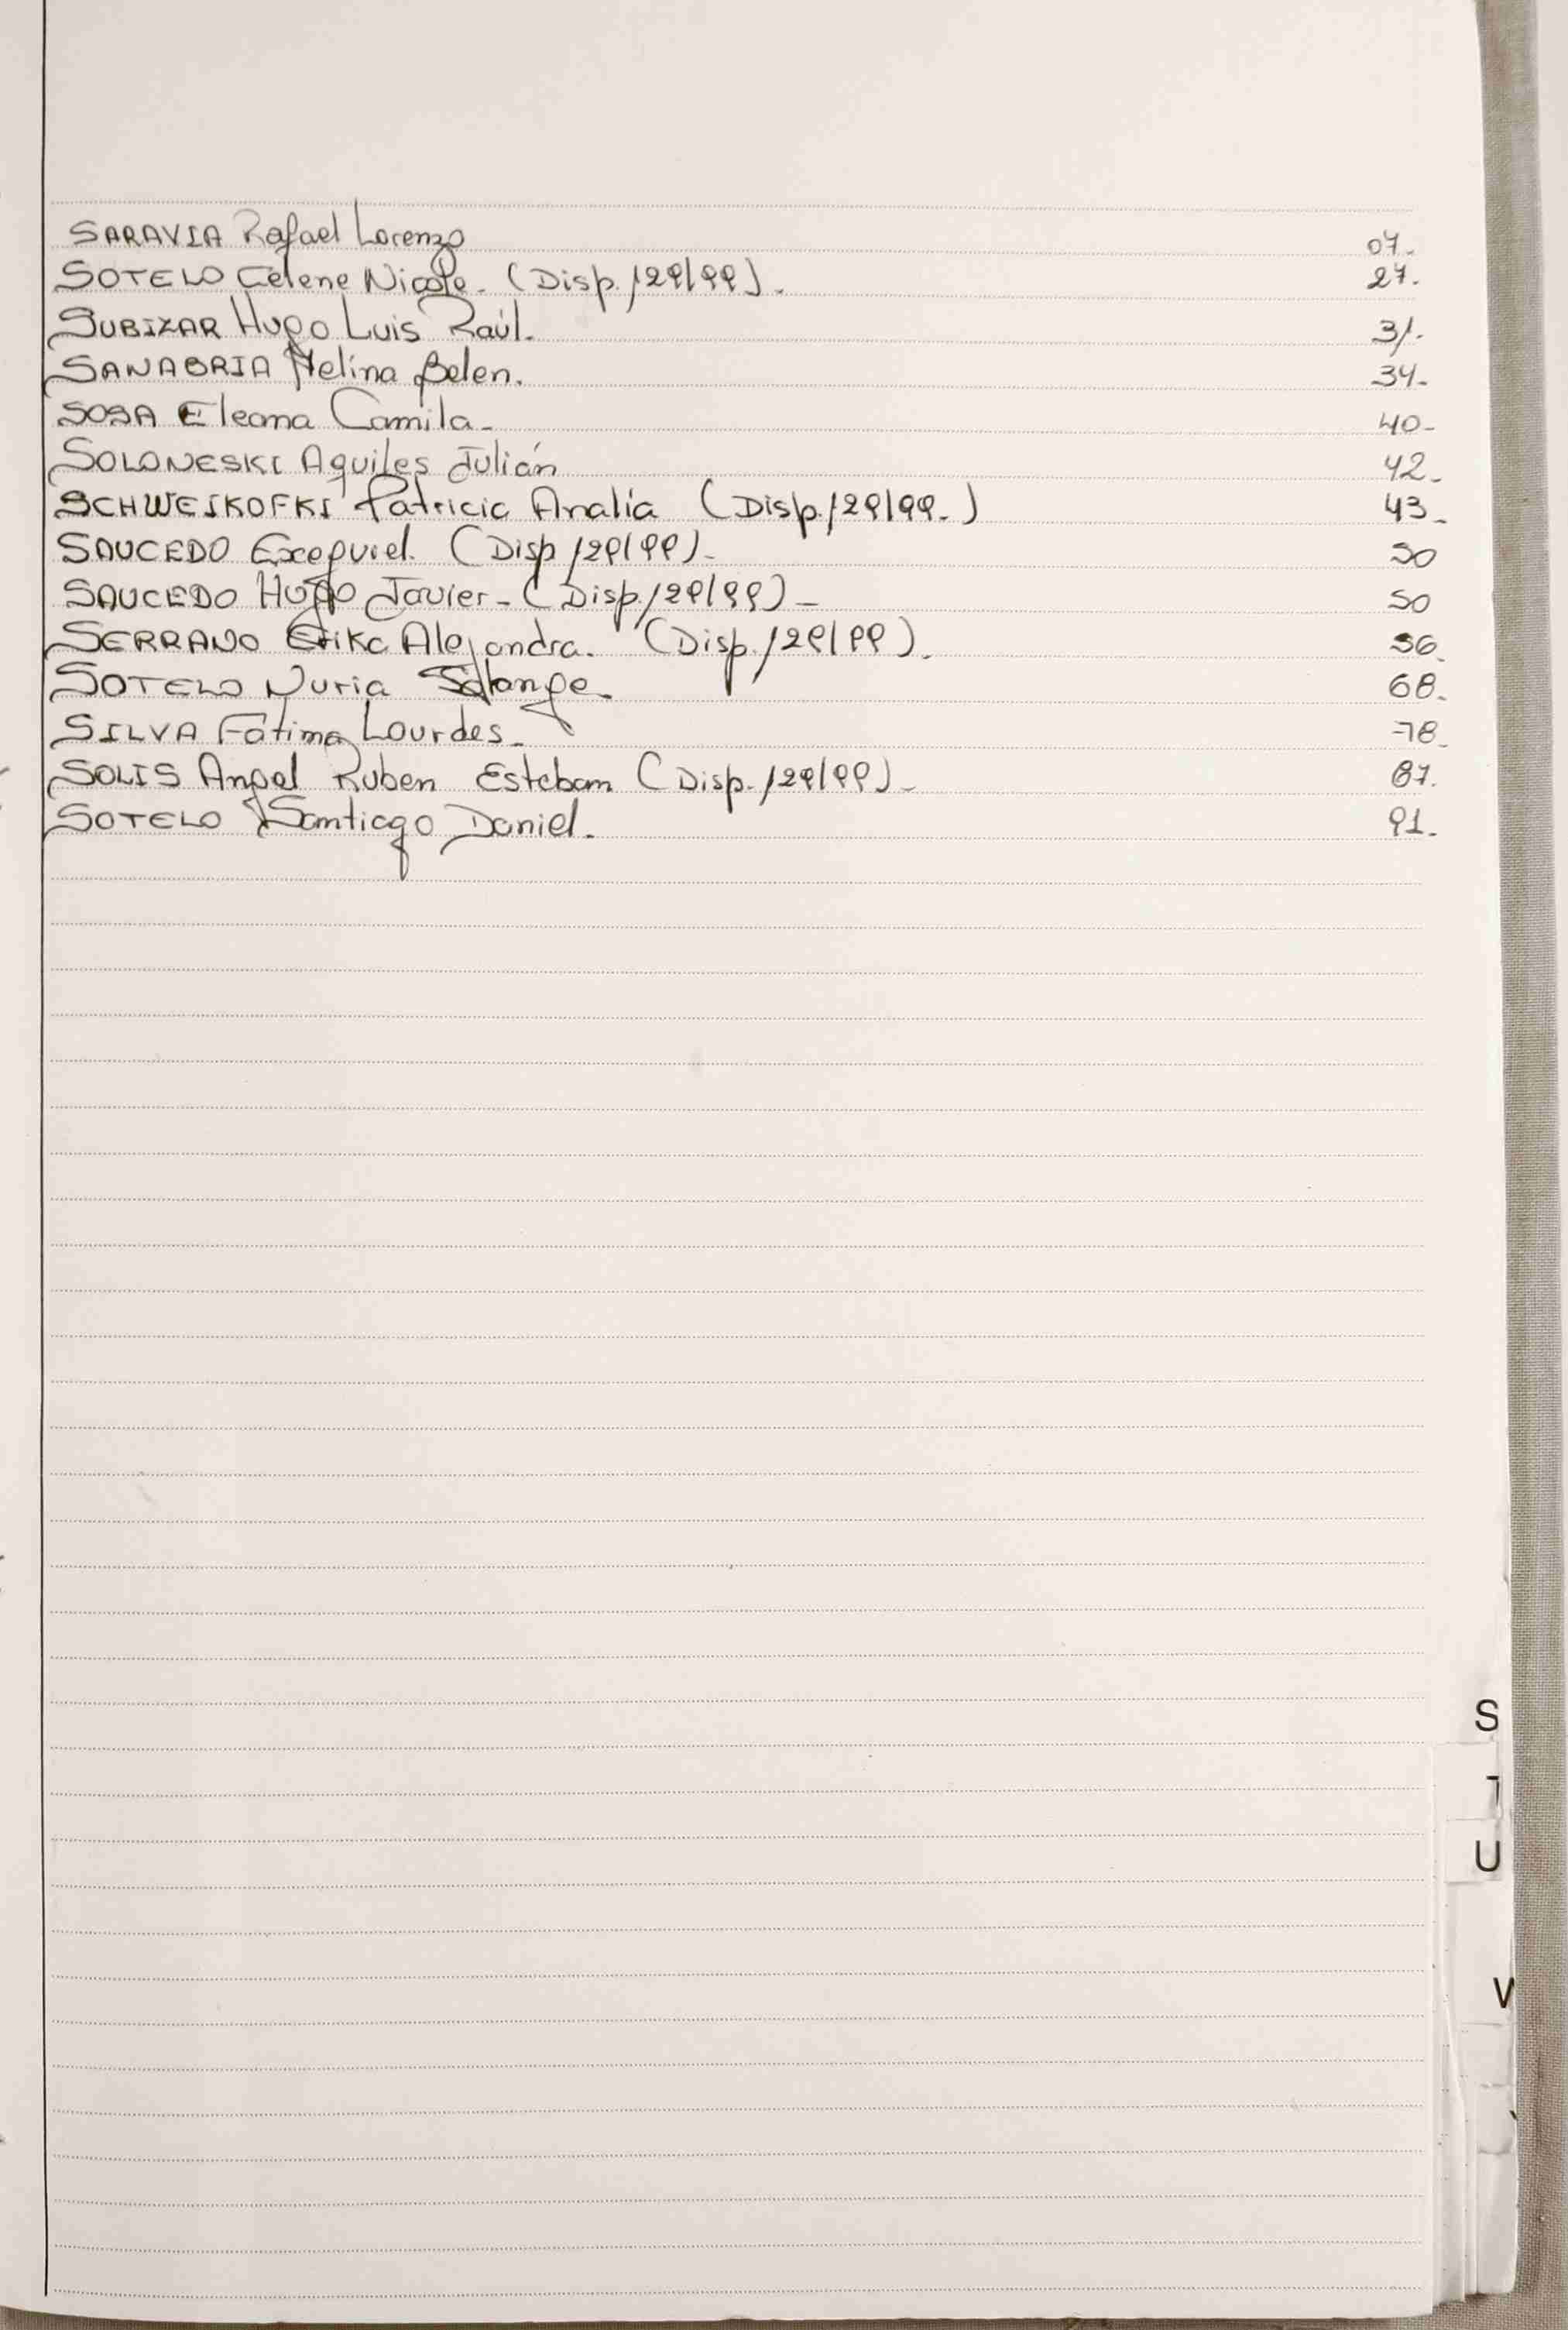 SARAVIA Rafael Lorenzo 07.
SOTELO Celene Nicole. (Disp. /29/99). 27.
SUBIZAR Hugo Luis Raúl. 31.
SANABRIA Melina Belen. 34.
SOSA Eleana Camila. 40-
SOLONESKI Aquiles Julián 42.
SCHWEIKOFKI Patricia Analía (Disp. /29/99.) 43.
SAUCEDO Exequiel. (Disp /29/99). 50
SAUCEDO Hugo Javier - (Disp. /29/99) - 50
SERRANO Erika Alejandra. (Disp. /29/99). 56.
SOTELO Nuria Solange. 68.
SILVA Fátima Lourdes. 78.
SOLIS Angel Ruben Esteban (Disp. /29/99). 87.
SOTELO Santiago Daniel. 91.
S
T
U